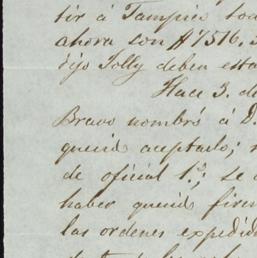 tir á Tampico
ahora son $7516.
dijo Jolly deben esta
Hace 3. de
Bravo nombró á D.
querid aceptado;
de oficial 1.º; se
haber querid firm
las ordenes expedid